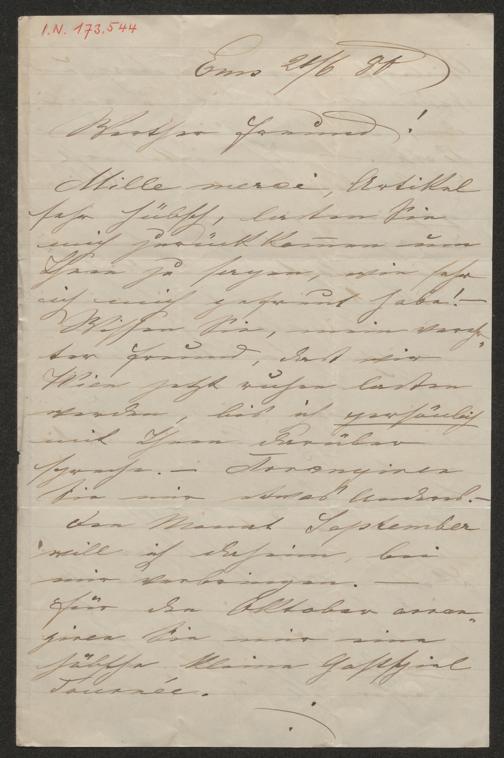 I.N. 173.544
Ems 24/6 80
Werther Freund!
Mille merci, Artikel
sehr hübsch, lassen Sie
mich zurückkommen um
Ihnen zu sagen, wie sehr
ich mich gefreut habe! –
Wissen Sie, mein verehr„
ter Freund, daß wir
Wien jetzt ruhen lassen
werden, bis ich persönlich
mit Ihnen darüber
spreche. – Arrangiren
Sie mir etwas Anderes. –
Den Monat September
will ich daheim, bei
mir verbringen. –
Für den Oktober arran„
giren Sie mir eine
hübsche kleine Gastspiel
Tournée.